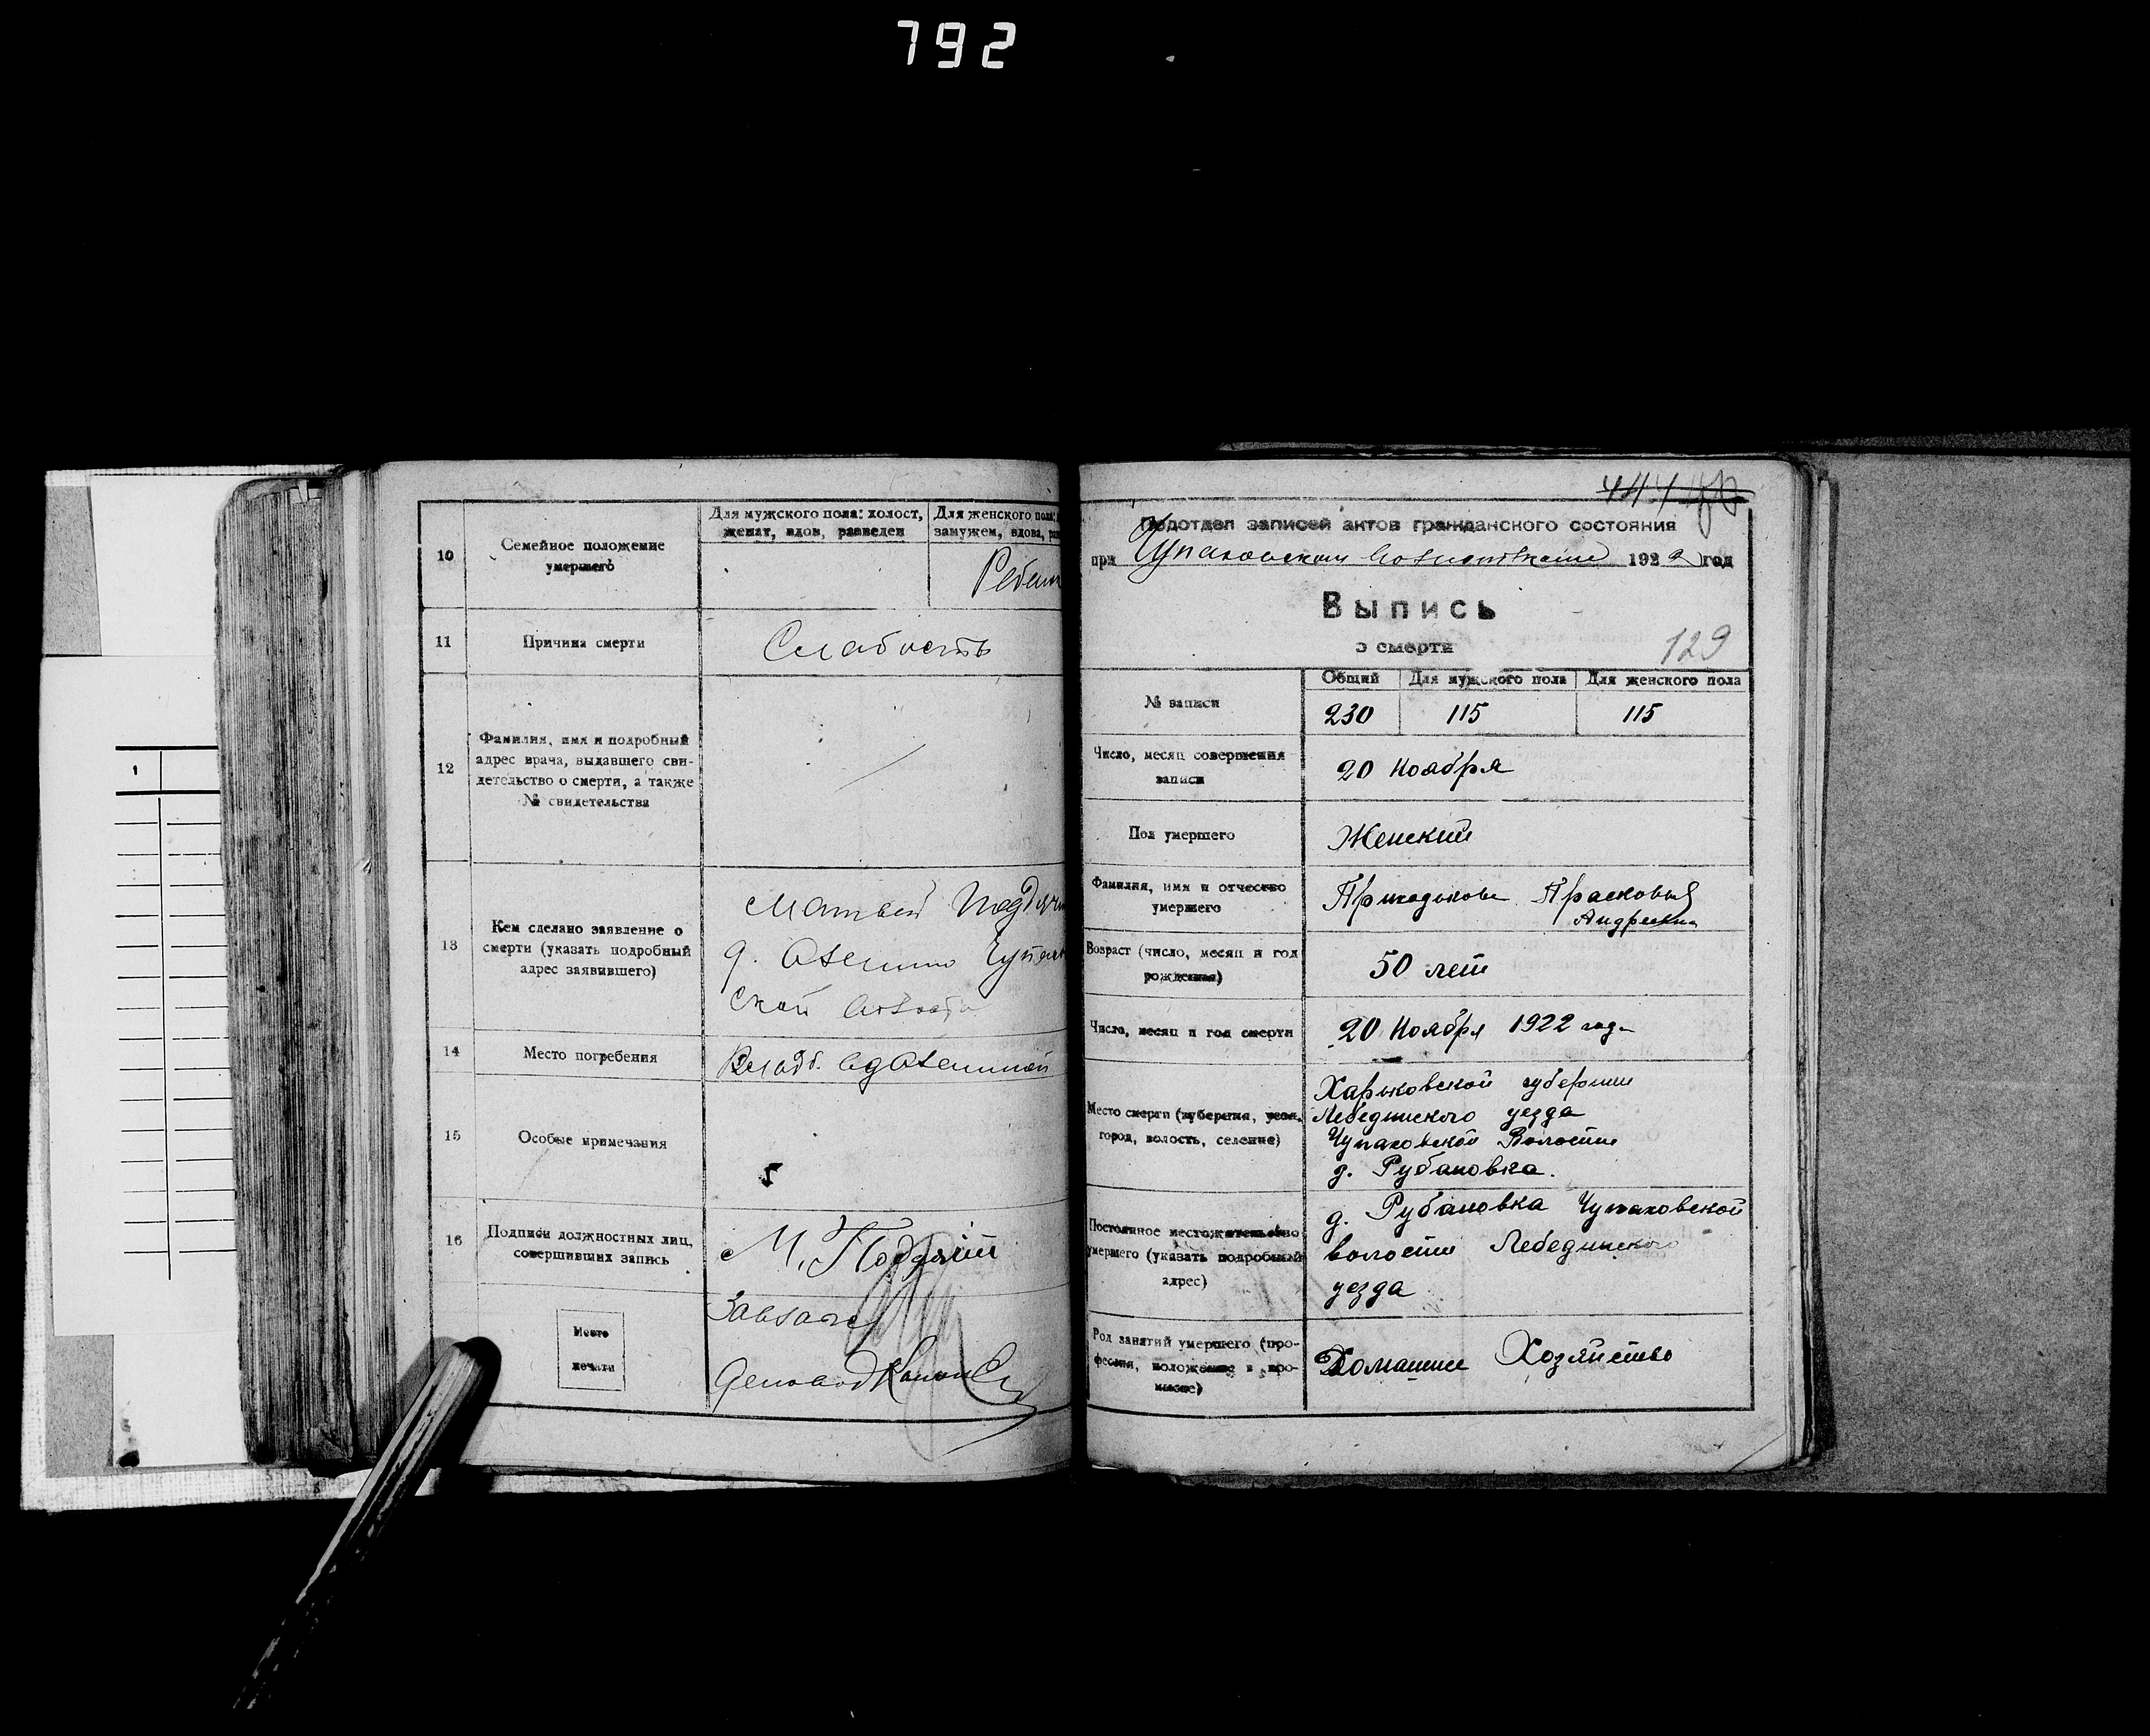 792
10
Семейное положение
умершего
Для мужского пола: холост,
женат, вдов, разведен
Для женского пола:
замужем, вдова,
11
Причина смерти
Слабость
12
Фамилия, имя и подробный
адрес врача, выдавшего сви-
детельство о смерти, а также
№ свидетельства
13
Кем сделано заявление о
смерти (указать подробный
адрес заявившего)
Матвей
д.
ской
14
Место погребения
15
Особые примечания
16
Подписи должностных лиц,
совершивших запись
М.
Место
печати
1
444
Подотдел записей актов гражданского состояния
при 1922 год
Выпись
о смерти
129
№ записи
Общий
Для мужского пола
Для женского пола
230
115
115
Число, месяц совершения
записи
20 Ноября
Пол умершего
Женский
Фамилия, имя и отчество
умершего
Приходькова Прасковья
Андреевна
Возраст (число, месяц и год
рождения)
50 лет
Число, месяц и год смерти
20 Ноября 1922 года
Место смерти (губерния, уезд,
город, волость, селение)
Харьковской губернии
Лебединского уезда
Чупаховской Волости
д. Рубановка.
Постоянное местожительство
умершего (указать подробный
адрес)
д. Рубановка Чупаховской
волости Лебединского
уезда
Род занятий умершего (про-
фессия, положение в про-
мысле)
Домашнее Хозяйство